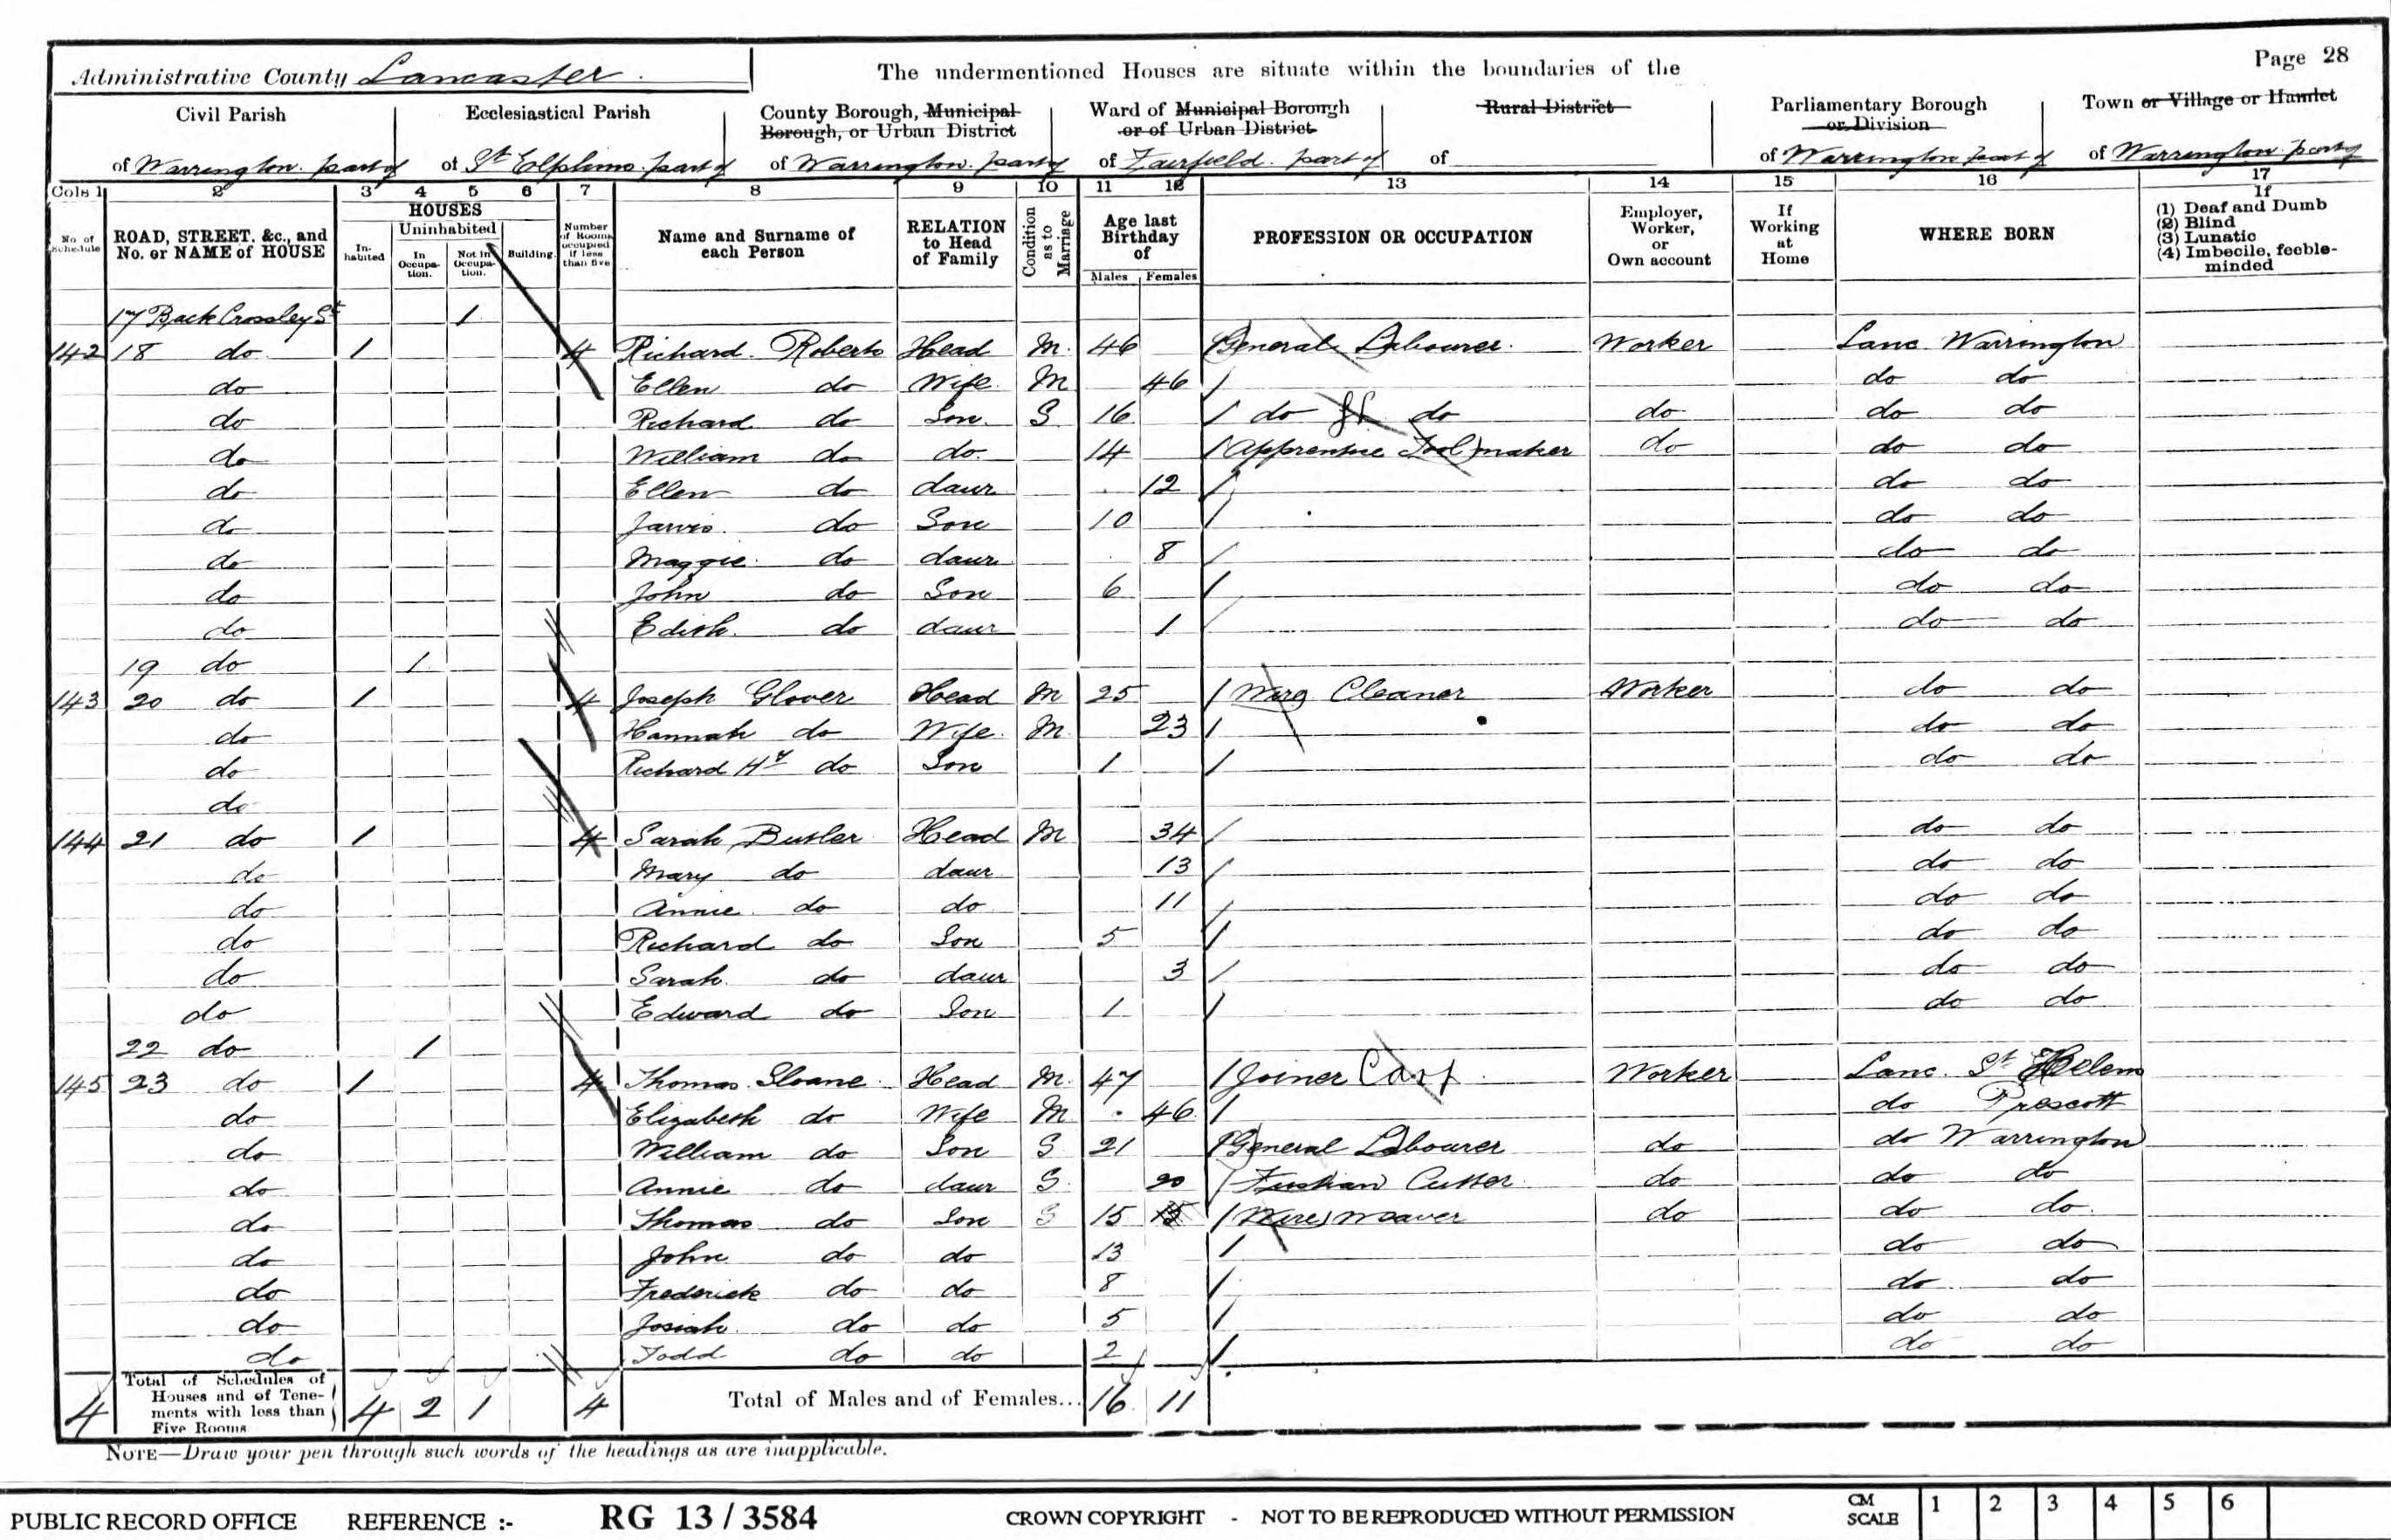 Page 28
Administrative County Lancaster.
The undermentioned Houses are situate within the boundaries of the
Civil Parish
of Warrington. part of
Ecclesiastical Parish
of St Elphins. part of
County Borough, Municipal Borough, or Urban District
of Warrington. part of
Ward of Municipal Borough or of Urban District
of Fairfield. part of
Rural District
of
Parliamentary Borough or Division
of Warrington part of
Town or Village or Hamlet
of Warrington. part of
Cols 1 2 3 4 5 6 7 8 9 10 11 12 13 14 15 16 17
No. of Schedule
ROAD, STREET, &c., and No. or NAME of HOUSE
HOUSES
Inhabited
Uninhabited
In Occupation.
Not in Occupation.
Building.
Number of Rooms occupied if less than five
Name and Surname of each Person
RELATION to Head of Family
Condition as to Marriage
Age last Birthday of
Males Females
PROFESSION OR OCCUPATION
Employer, Worker, or Own account
If Working at Home
WHERE BORN
If
(1) Deaf and Dumb
(2) Blind
(3) Lunatic
(4) Imbecile, feeble-minded
17 Back Crossley St 1
142 18 do 1 4 Richard Roberts Head M. 46 General Labourer. Worker Lanc Warrington
do Ellen do Wife. M 46 do do
do Richard do Son. S 16 do do do do do
do William do do. 14 Apprentice Tool maker do do do
do Ellen do daur 12 do do
do Jarvis. do Son 10 do do
do Maggie do daur 8 do do
do John do Son 6 do do
do Edith. do daur 1 do do
19 do 1
143 20 do 1 4 Joseph Glover Head M 25 Cleaner Worker do do
do Hannah do Wife. M 23 do do
do Richard Hy do Son 1 do do
do
144 21 do 1 4 Sarah Butler Head M 34 do do
do Mary do daur 13 do do
do Annie do do 11 do do
do Richard do Son 5 do do
do Sarah do daur 3 do do
do Edward do Son 1 do do
22 do 1
145 23 do 1 4 Thomas Sloane Head M. 47 Joiner Carp Worker Lanc. St Helens
do Elizabeth do Wife M 46 do Prescott
do William do Son S 21 General Labourer do do Warrington
do Annie do daur S. 20 Fustian Cutter do do do
do Thomas do Son S 15 15 Wire weaver do do do.
do John do do 13 do do
do Frederick do do 8 do do
do Josiah do do 5 do do
do Todd do do 2 do do
4 Total of Schedules of Houses and of Tenements with less than Five Rooms 4 2 1 4 Total of Males and of Females... 16 11
NOTE—Draw your pen through such words of the headings as are inapplicable.
PUBLIC RECORD OFFICE REFERENCE :- RG 13 / 3584 CROWN COPYRIGHT - NOT TO BE REPRODUCED WITHOUT PERMISSION CM SCALE 1 2 3 4 5 6